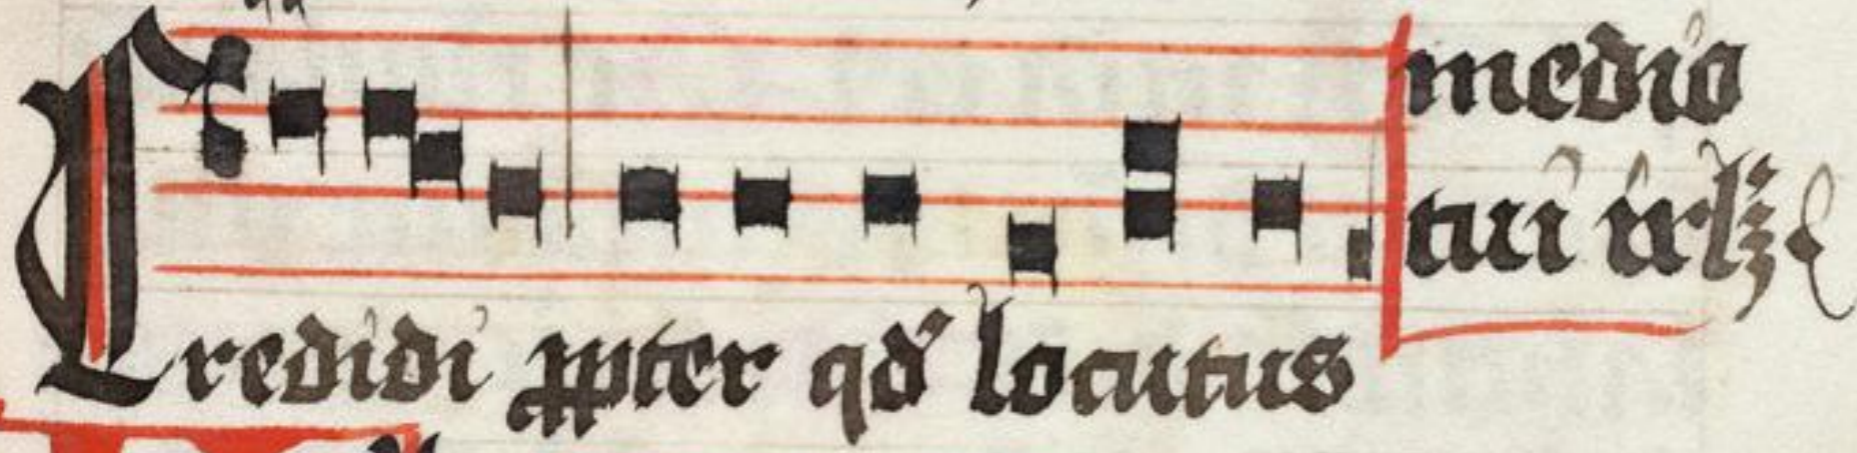 medio
tui irl̄z
Credidi ꝓpter qd̛ locutus